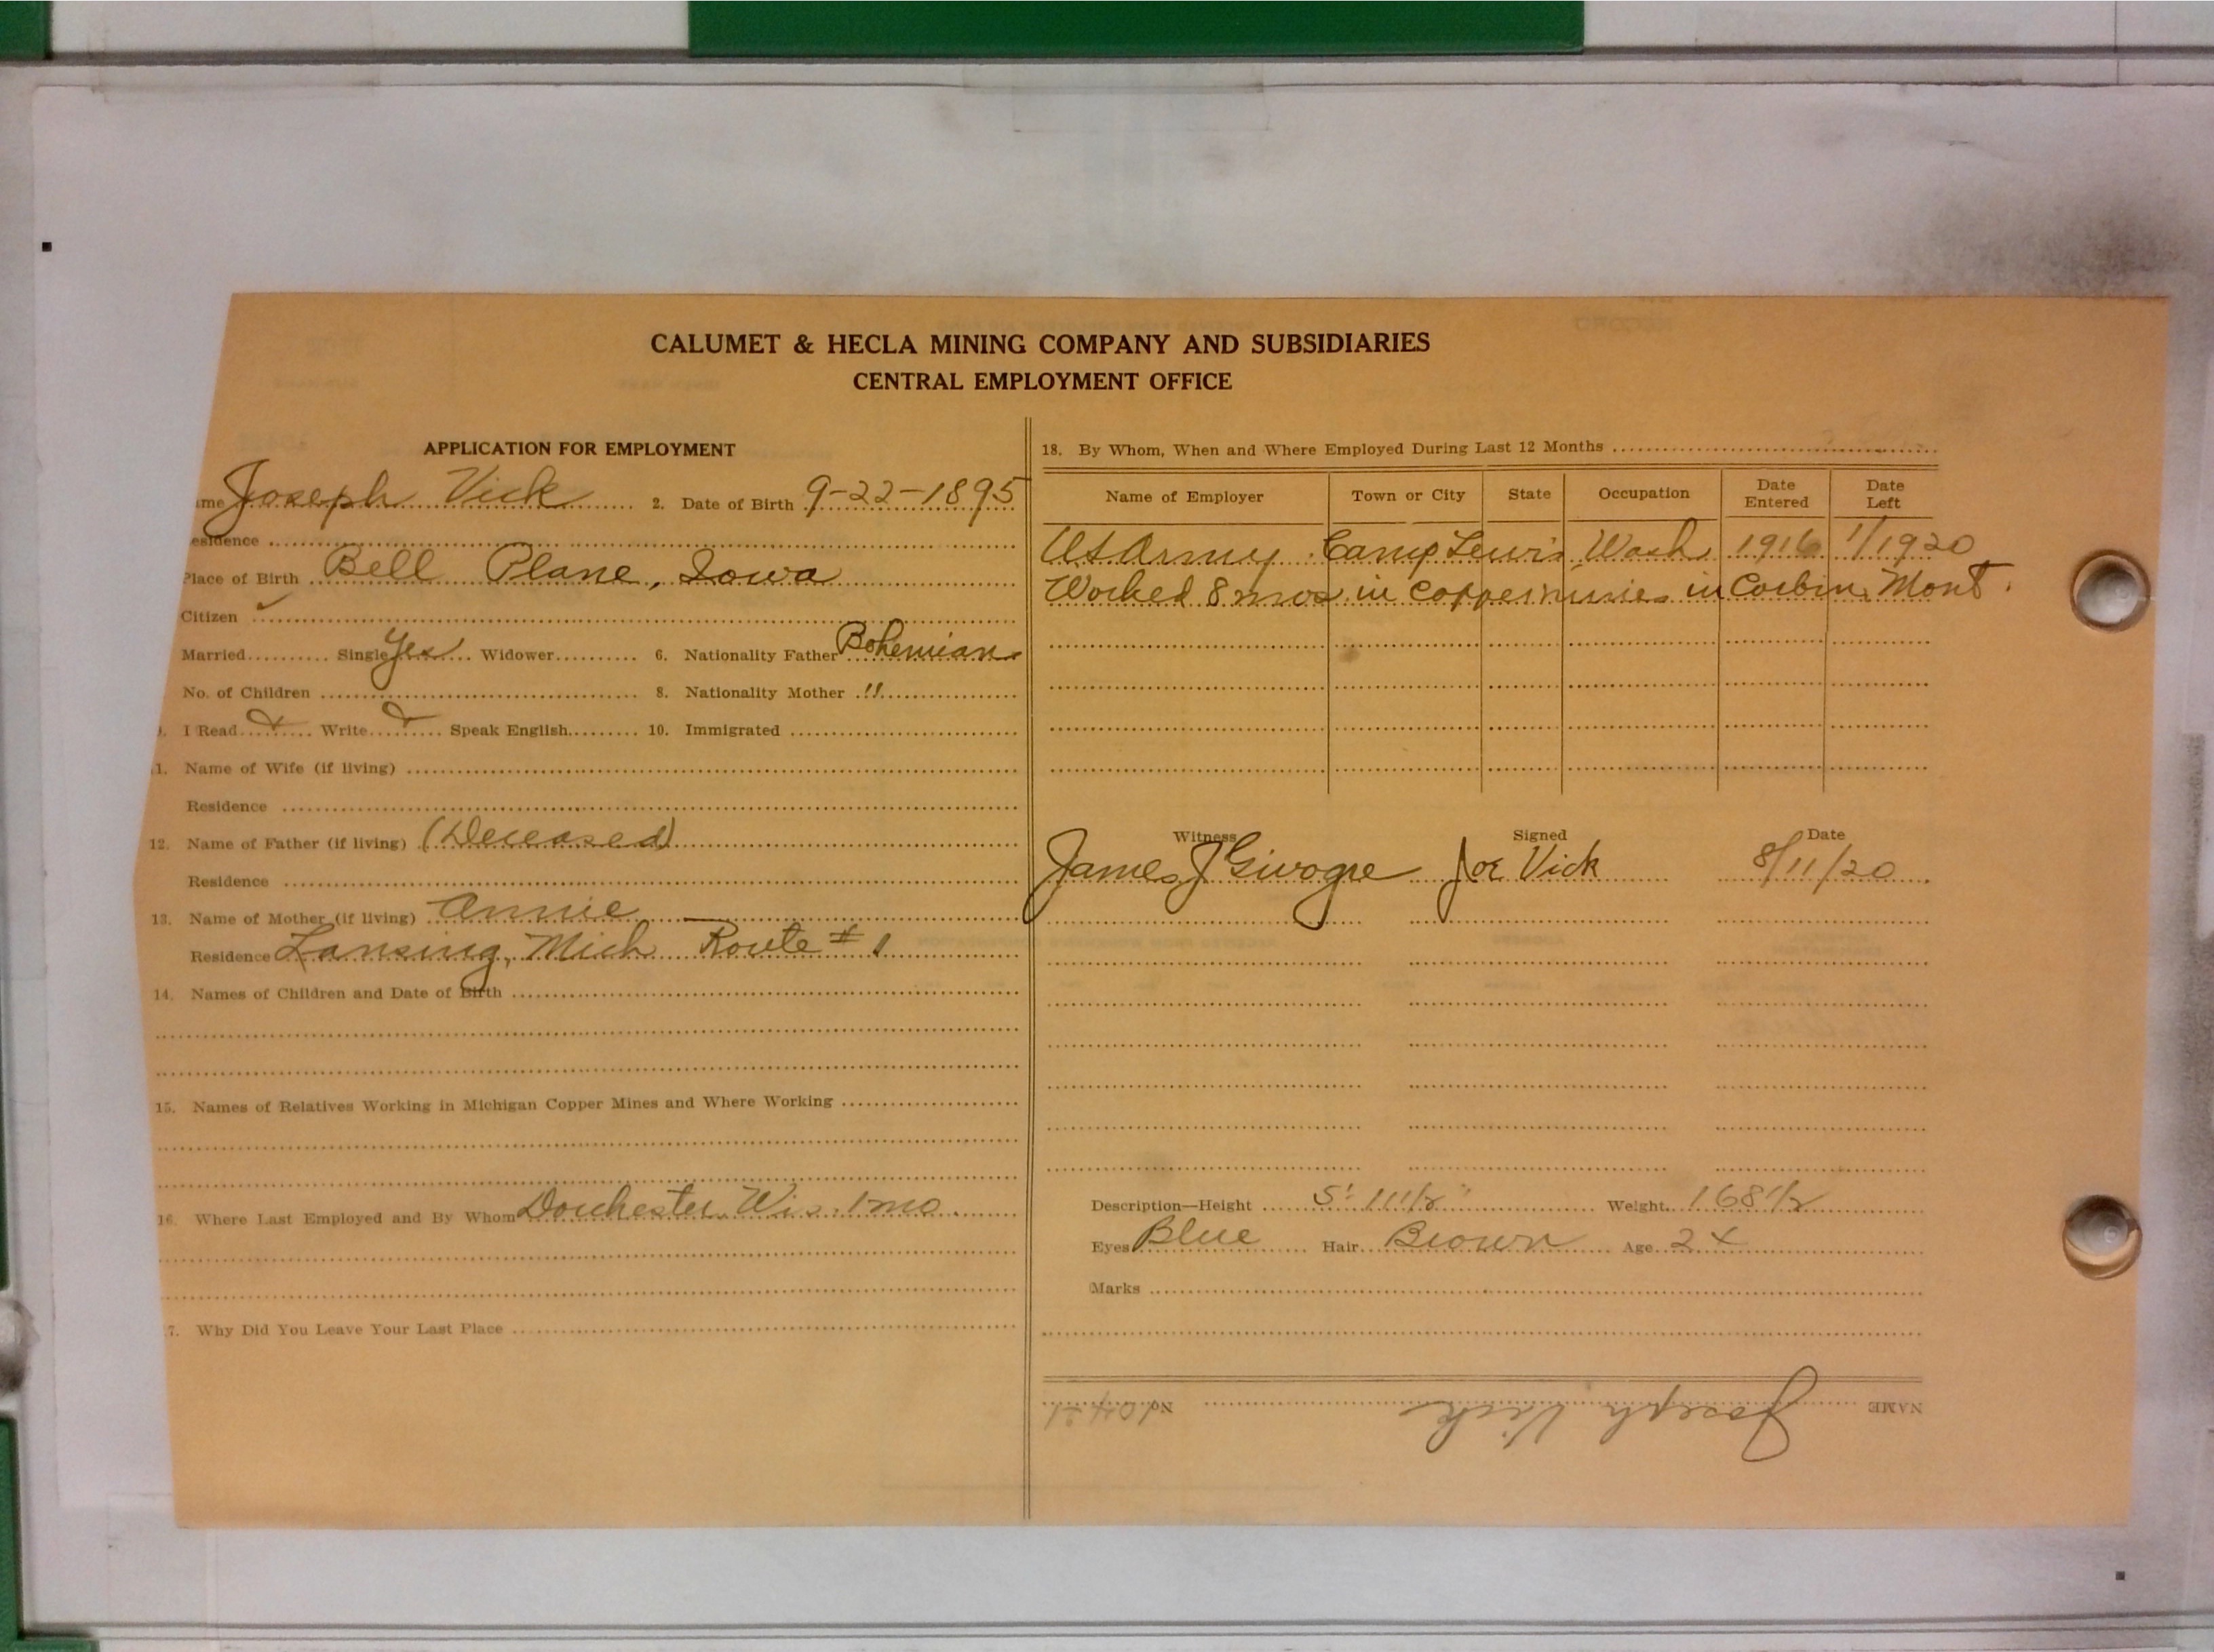 CALUMET & HECLA MINING COMPANY AND SUBSIDIARIES
CENTRAL EMPLOYMENT OFFICE
APPLICATION FOR EMPLOYMENT
ame Joseph Vick 2. Date of Birth 9-22-1895
esidence
Place of Birth Bell Plane, Iowa
Citizen ✓
Married Single Yes Widower 6. Nationality Father Bohemian
No. of Children 8. Nationality Mother "
I Read Write Speak English 10. Immigrated
1. Name of Wife (if living)
Residence
12. Name of Father (if living) (Deceased)
Residence
13. Name of Mother (if living) Annie
Residence Lansing, Mich Route # 1
14. Names of Children and Date of Birth
15. Names of Relatives Working in Michigan Copper Mines and Where Working
16. Where Last Employed and By Whom Dorchester Wis. 1 mo.
7. Why Did You Leave Your Last Place
18. By Whom, When and Where Employed During Last 12 Months
Name of Employer Town or City State Occupation Date Entered Date Left
US Army Camp Lewis Wash 1916 1/1920
Worked 8 mos in copper mines in Corbin, Mont.
Witness Signed Date
James J Joe Vick 8/11/20
Description—Height 5' 11 1/2" Weight 168 1/2
Eyes Blue Hair Brown Age 24
Marks
NAME Joseph Vick No.